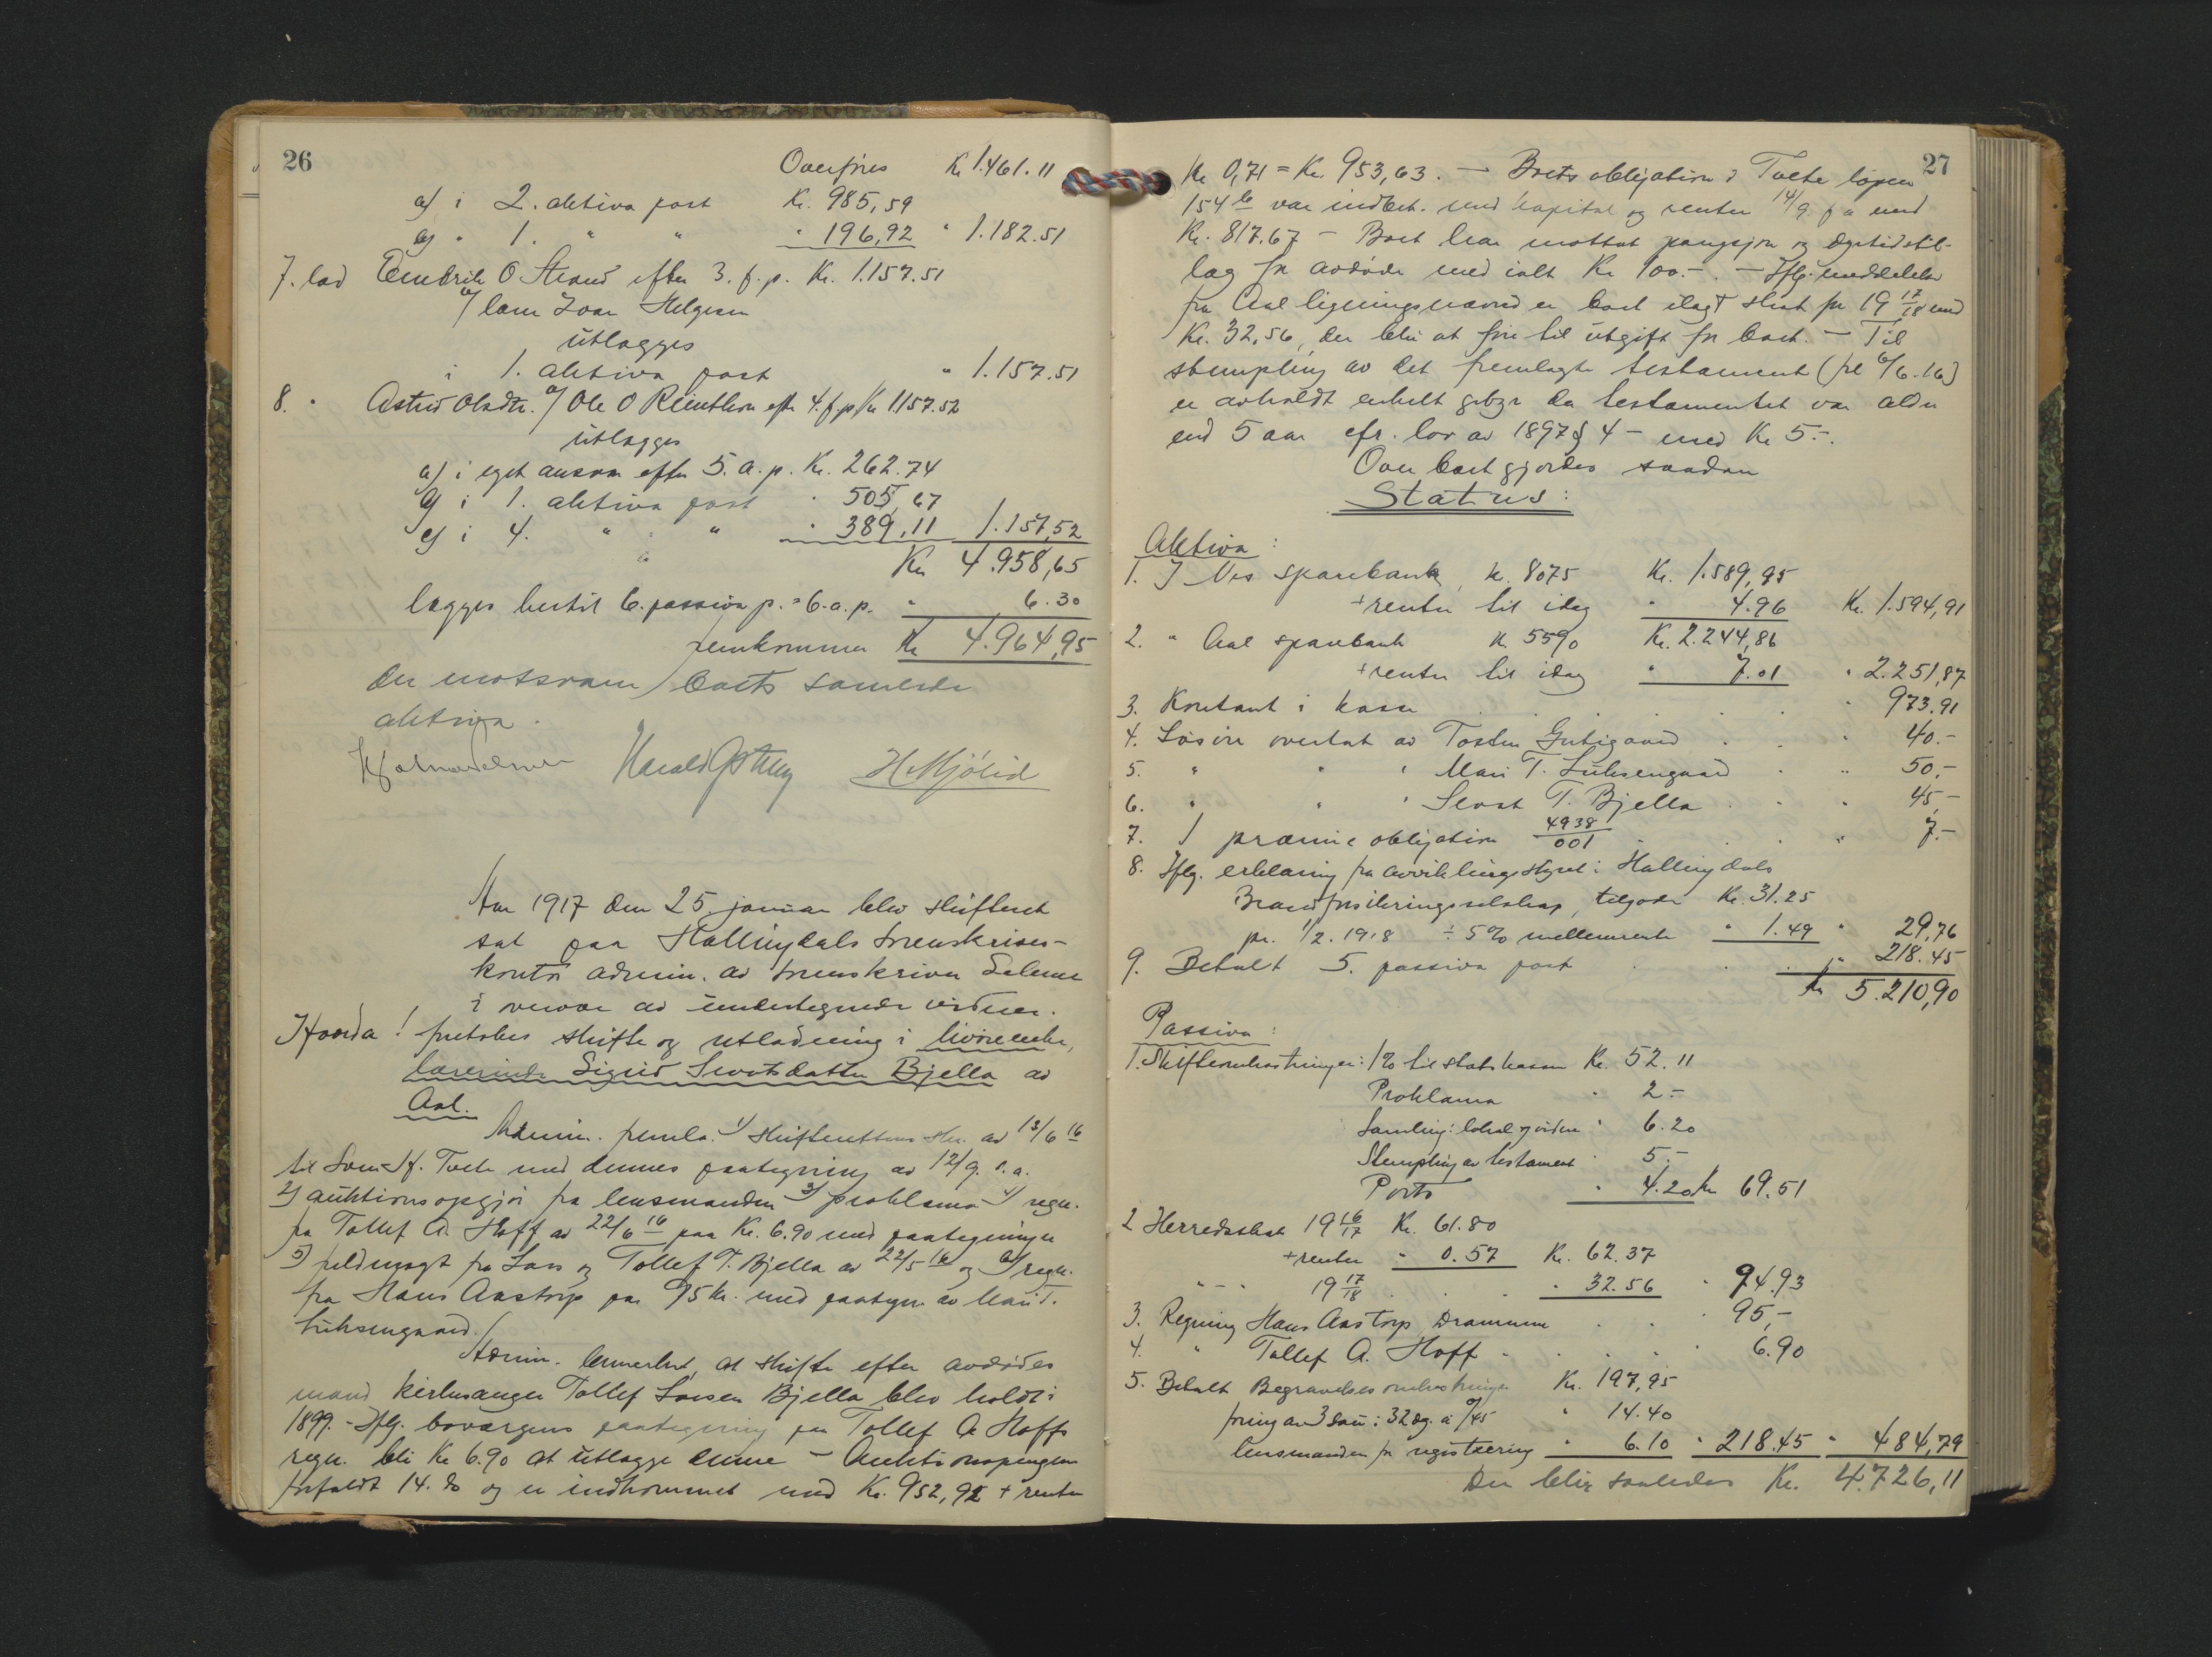 26
Overføres Kr. 1.461.11
a) i 2. aktiva post Kr. 985,59
b) " 1. " " " 196,92 " 1.182.51
7. lod Embrik O Strand efter 3. f. p. Kr. 1.157.51
v/ Ivar Helgesen
utlægges
i 1. aktiva post " 1.157.51
8. " Astrid Olsdtr. v/ Ole O efter 4. f. p. Kr. 1157.52
utlægges
a) i eget ansvar efter 5. a. p. Kr. 262.74
b) i 1. aktiva post " 505,67
c) i 4. " " " 389,11 1.157,52
Kr. 4.958,65
lægges hertil 6. passiva p. = 6. a. p. " 6.30
fremkommer Kr. 4.964,95
der motsvarer boets samlede
aktiva.
H. Mjølid
Aar 1917 den 25 januar blev skifteret
sat paa Hallingdals sorenskriver-
kontor admin. av sorenskriver
i overvær av undertegnede vidner.
Hvorda! foretokes skifte og utlodning i
lærerinde Sigrid Sevatsdatter Bjella av
Aal.
Admin. fremla. 1) skifterettens skr. av 13/6 16
til med dennes paategning av 12/9. s. a.
2) auktionsopgjør fra lensmanden 3) proklama 4) regn.
fra Tollef A. Hoff av 22/6 16 paa Kr. 6.90 med paategninger
5) fuldmagt fra Lars og Tollef T. Bjella av 22/5 16 og 6) regn.
fra Hans Aastorp paa 95 kr. med paategn. av Mari T.
Admin. bemerket, at skifte efter avdødes
mand kirkesanger Tollef Larsen Bjella blev holdt i
1899. - Iflg. boværgens paategning paa Tollef A Hoffs
regn. bli Kr 6.90 at utlægge denne - Auktionspengene
forfaldt 14. ds og er indkommet med Kr. 952,92 + renter
27
Kr 0,71 = Kr. 953,63. - Boets obligation i
154 var indbet. med kapital og renter 14/9. f a med
Kr. 817.67 - Boet har mottat pensjon og dyrtidstil-
læg for avdøde med ialt Kr 100.-. - Iflg. meddelelse
fra Aal ligningsnævnd er boet ilagt skat for 19 17/18 med
Kr. 32,56, der blir at føre til utgift for boet. - Til
stempling av det fremlagte testament
er avholdt enkelt gebyr da testamentet var ældre
end 5 aar cfr. lov av 1897 § 4 - med Kr 5.-.
Over boet gjordes saadan
Status:
Aktiva:
1. I Nes sparebank, kr. 8075 Kr. 1.589,95
+ renter til idag " 4.96 Kr. 1.594,91
2. " Aal sparebank kr. 5590 Kr. 2.244,86
+ renter til idag " 7.01 " 2.251,87
3. Kontant i kasse . . . " 973.91
4. Løsøre overtat av Tosten . . " 40.-
5. " " " Mari T. . " 50,-
6. " " " Sevat T. Bjella . . " 45,-
7. 1 præmieobligation 4938/001 . . . " 7.-
8. Iflg. erklæring fra avviklingsstyret i Hallingdals
Brandforsikringsselskap, tilgode Kr. 31.25
pr. 1/2. 1918 ÷ 5% mellemrente " 1.49 " 29,76
9. Betalt 5. passiva post . . . " 218.45
Kr 5.210,90
Passiva:
1. Skifteomkostninger: 1% til statskassen Kr. 52.11
Proklama " 2.-
Samling: lokal og vidner " 6.20
Stempling av testament " 5.-
Porto " 4.20 Kr 69.51
2 Herredsskat 19 16/17 Kr. 61.80
+ renter " 0.57 Kr. 62.37
" - " 19 17/18 . . " 32.56 " 94.93
3. Regning Hans Aastorp Drammen . . " 95,-
4. " Tollef A. Hoff . . . . " 6.90
5. Betalt Begravelsesomkostninger Kr. 197,95
foring av 3 sau i 32 dg. à 0/45 " 14.40
lensmanden for registrering " 6.10 " 218.45 " 484,79
Der blir saaledes Kr. 4.726,11